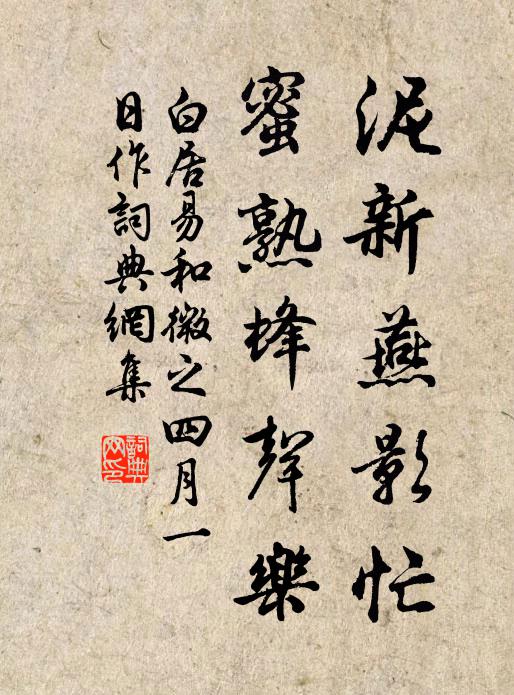 泥新燕影忙
蜜熟蜂聲樂
白居易和微之四月一
日作詞典網集
詞典網印